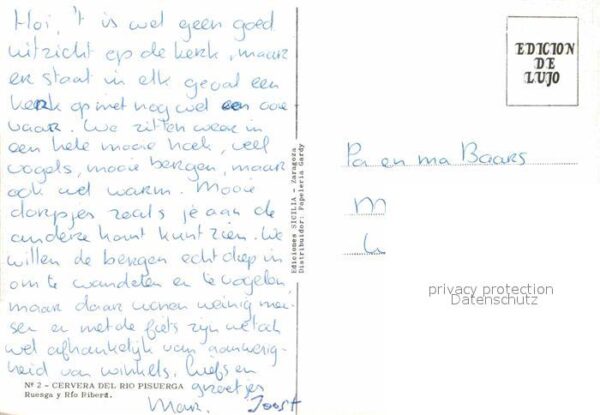 Hoi, 't is wel geen goed
uitzicht op de kerk, maar
er staat in elk geval een
kerk op met nog wel een ooie
vaar. We zitten weer in
een hele mooie hoek, veel
vogels, mooie bergen, maar
ook wel warm. Mooie
dorpjes zoals je aan de
andere kant kunt zien. We
willen de bergen echt diep in
om te wandelen en te vogelen,
maar daar wonen weinig men-
sen en met de fiets zijn we toch
wel afhankelijk van aanwezig-
heid van winkels. Liefs en
groetjes
Mar. Joost
Nº 2 - CERVERA DEL RIO PISUERGA
Ruesga y Río Ribera.
Ediciones SICILIA - Zaragoza
Distribuidor: Papelería Gardy
EDICION
DE
LUJO
Pa en ma Baars
privacy protection
Datenschutz